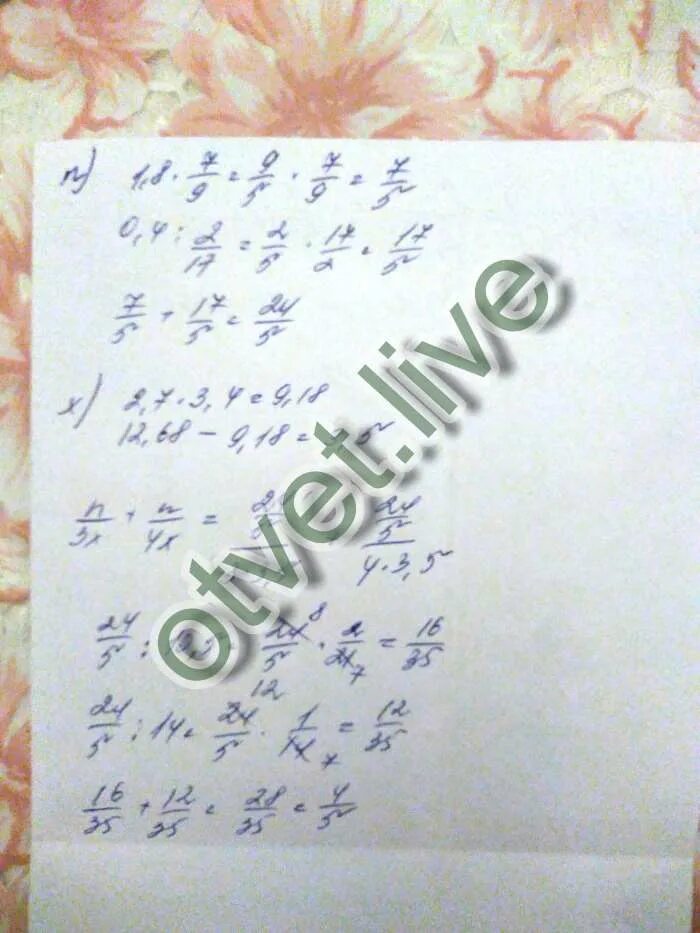 n) 1,8 · 7/9 = 9/5 · 7/9 = 7/5
0,4 : 2/17 = 2/5 · 17/2 = 17/5
7/5 + 17/5 = 24/5
x) 2,7 · 3,4 = 9,18
12,68 - 9,18 = 5
n/3x + n/4x = 24/5 / 4·3,5
24/5 : 24/5 8 · 2/21 7 = 16/35
24/5 : 14 = 24/5 12 · 1/14 7 = 12/35
16/35 + 12/35 = 28/35 = 4/5
otvet.live